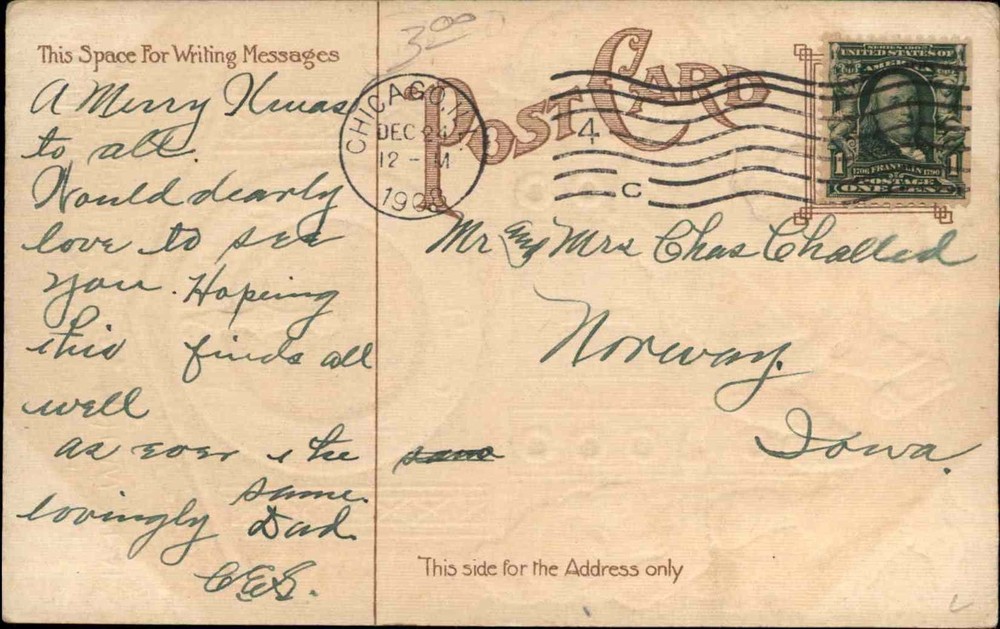 This Space For Writing Messages
A Merry Xmas
to all.
Would dearly
love to see
you. Hoping
this finds all
well
as ever the same
same.
lovingly Dad
C.E.S.
3.00
POST CARD
CHICAGO, ILL.
DEC 24
12 - M
1908
4
C
SERIES 1902
UNITED STATES OF
AMERICA
1 1
1706 FRANKLIN 1790
POSTAGE
ONE CENT
Mr and Mrs Chas Challed
Norway.
Iowa.
This side for the Address only